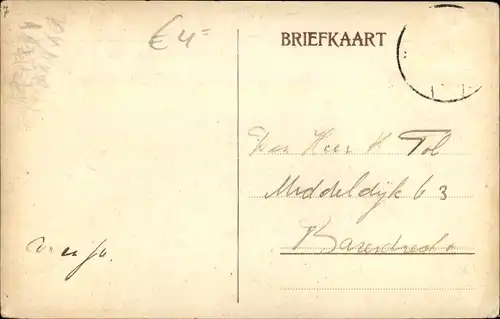 € 4=
BRIEFKAART
Den Heer K Tol
Middeldijk 63
Barendrecht